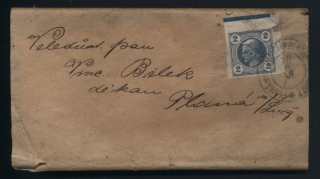 Veledůst. pan
Vinc. Bílek
děkan
Planá
2 2
2 2